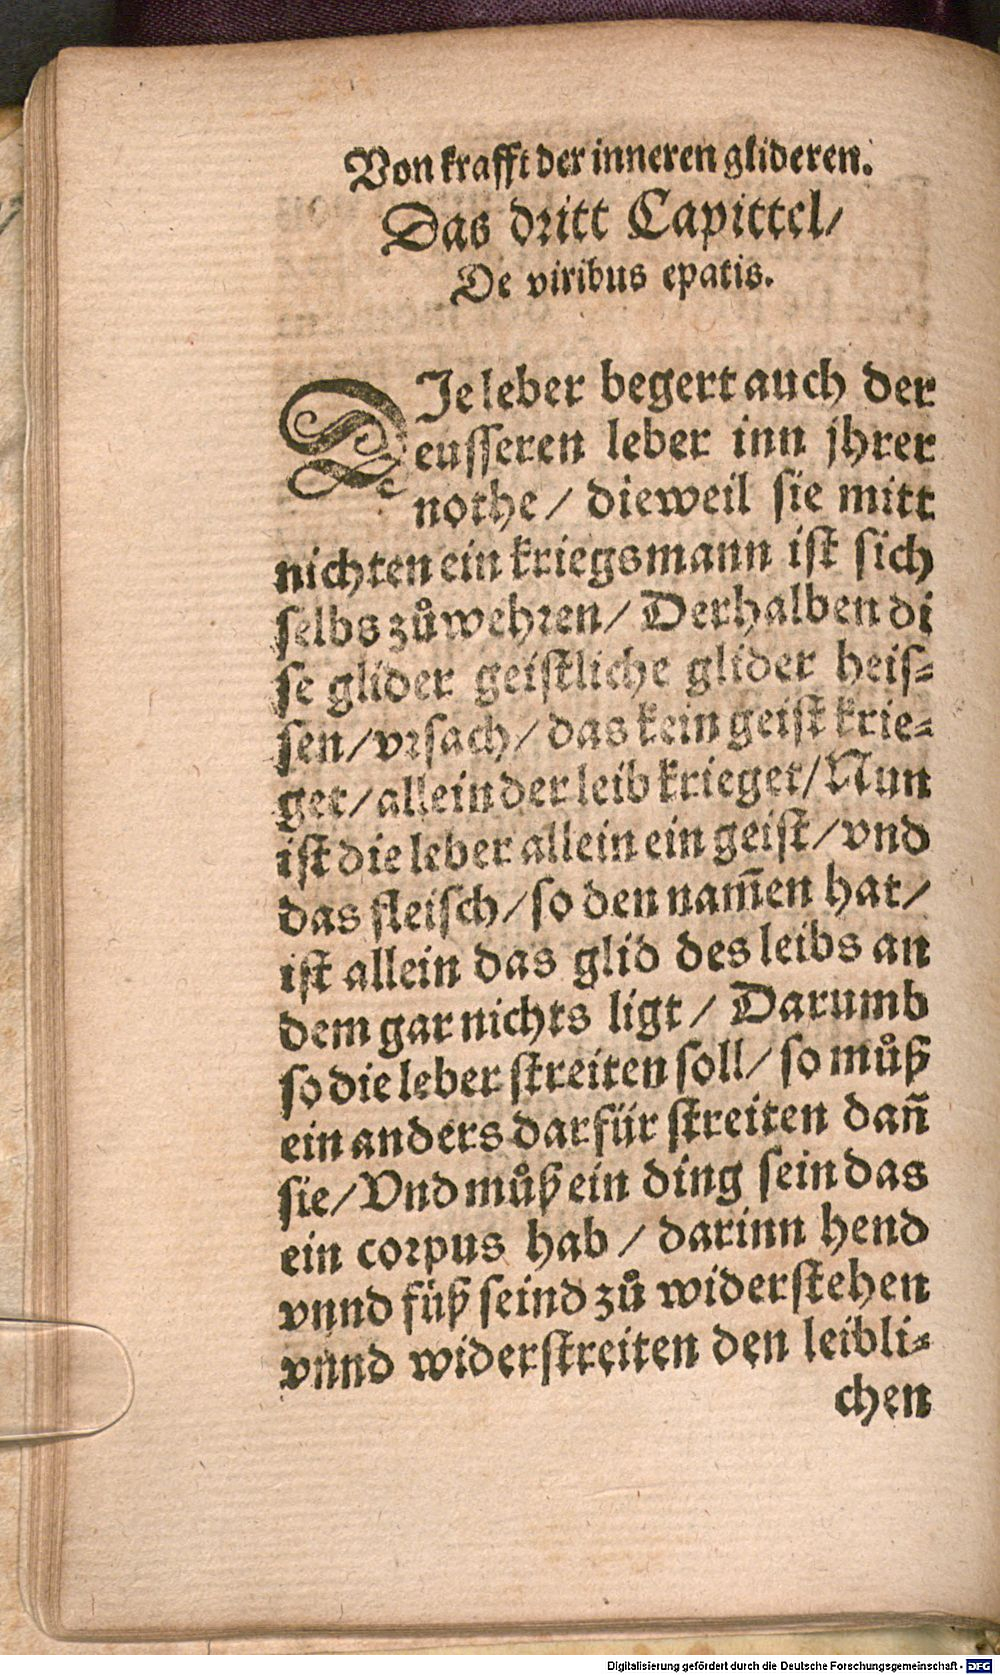 Von krafft der inneren glideren.
Das dritt Capittel/
De viribus epatis.
DIe leber begert auch der
eusseren leber inn jhrer
nothe / dieweil sie mitt
nichten ein kriegsmann ist sich
selbs zůwehren/ Derhalben di
se glider geistliche glider heis-
sen/vrsach/ das kein geist krie-
get/allein der leib krieget/Nun
ist die leber allein ein geist/vnd
das fleisch/so den nam̄en hat/
ist allein das glid des leibs an
dem gar nichts ligt / Darumb
so die leber streiten soll/ so můß
ein anders darfür streiten dan̄
sie/Vnd můß ein ding sein das
ein corpus hab / darinn hend
vnnd füß seind zů widerstehen
vnnd widerstreiten den leibli-
chen
Digitalisierung gefördert durch die Deutsche Forschungsgemeinschaft - DFG